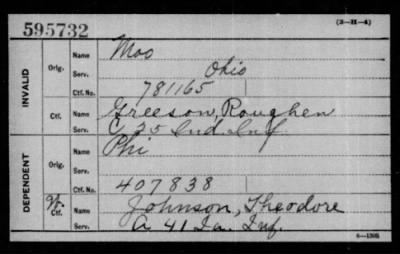 (3-H-4)
595732
INVALID
Orig.
Name Moo
Serv. Ohio
Ctf. No. 781165
Ctf.
Name Greeson, Roughen
Serv. C 25 Ind. Inf.
DEPENDENT
Orig.
Name Phi
Serv.
Ctf. No. 407838
W. Ctf.
Name Johnson, Theodore
Serv. A 41 Ia. Inf.
6—1205